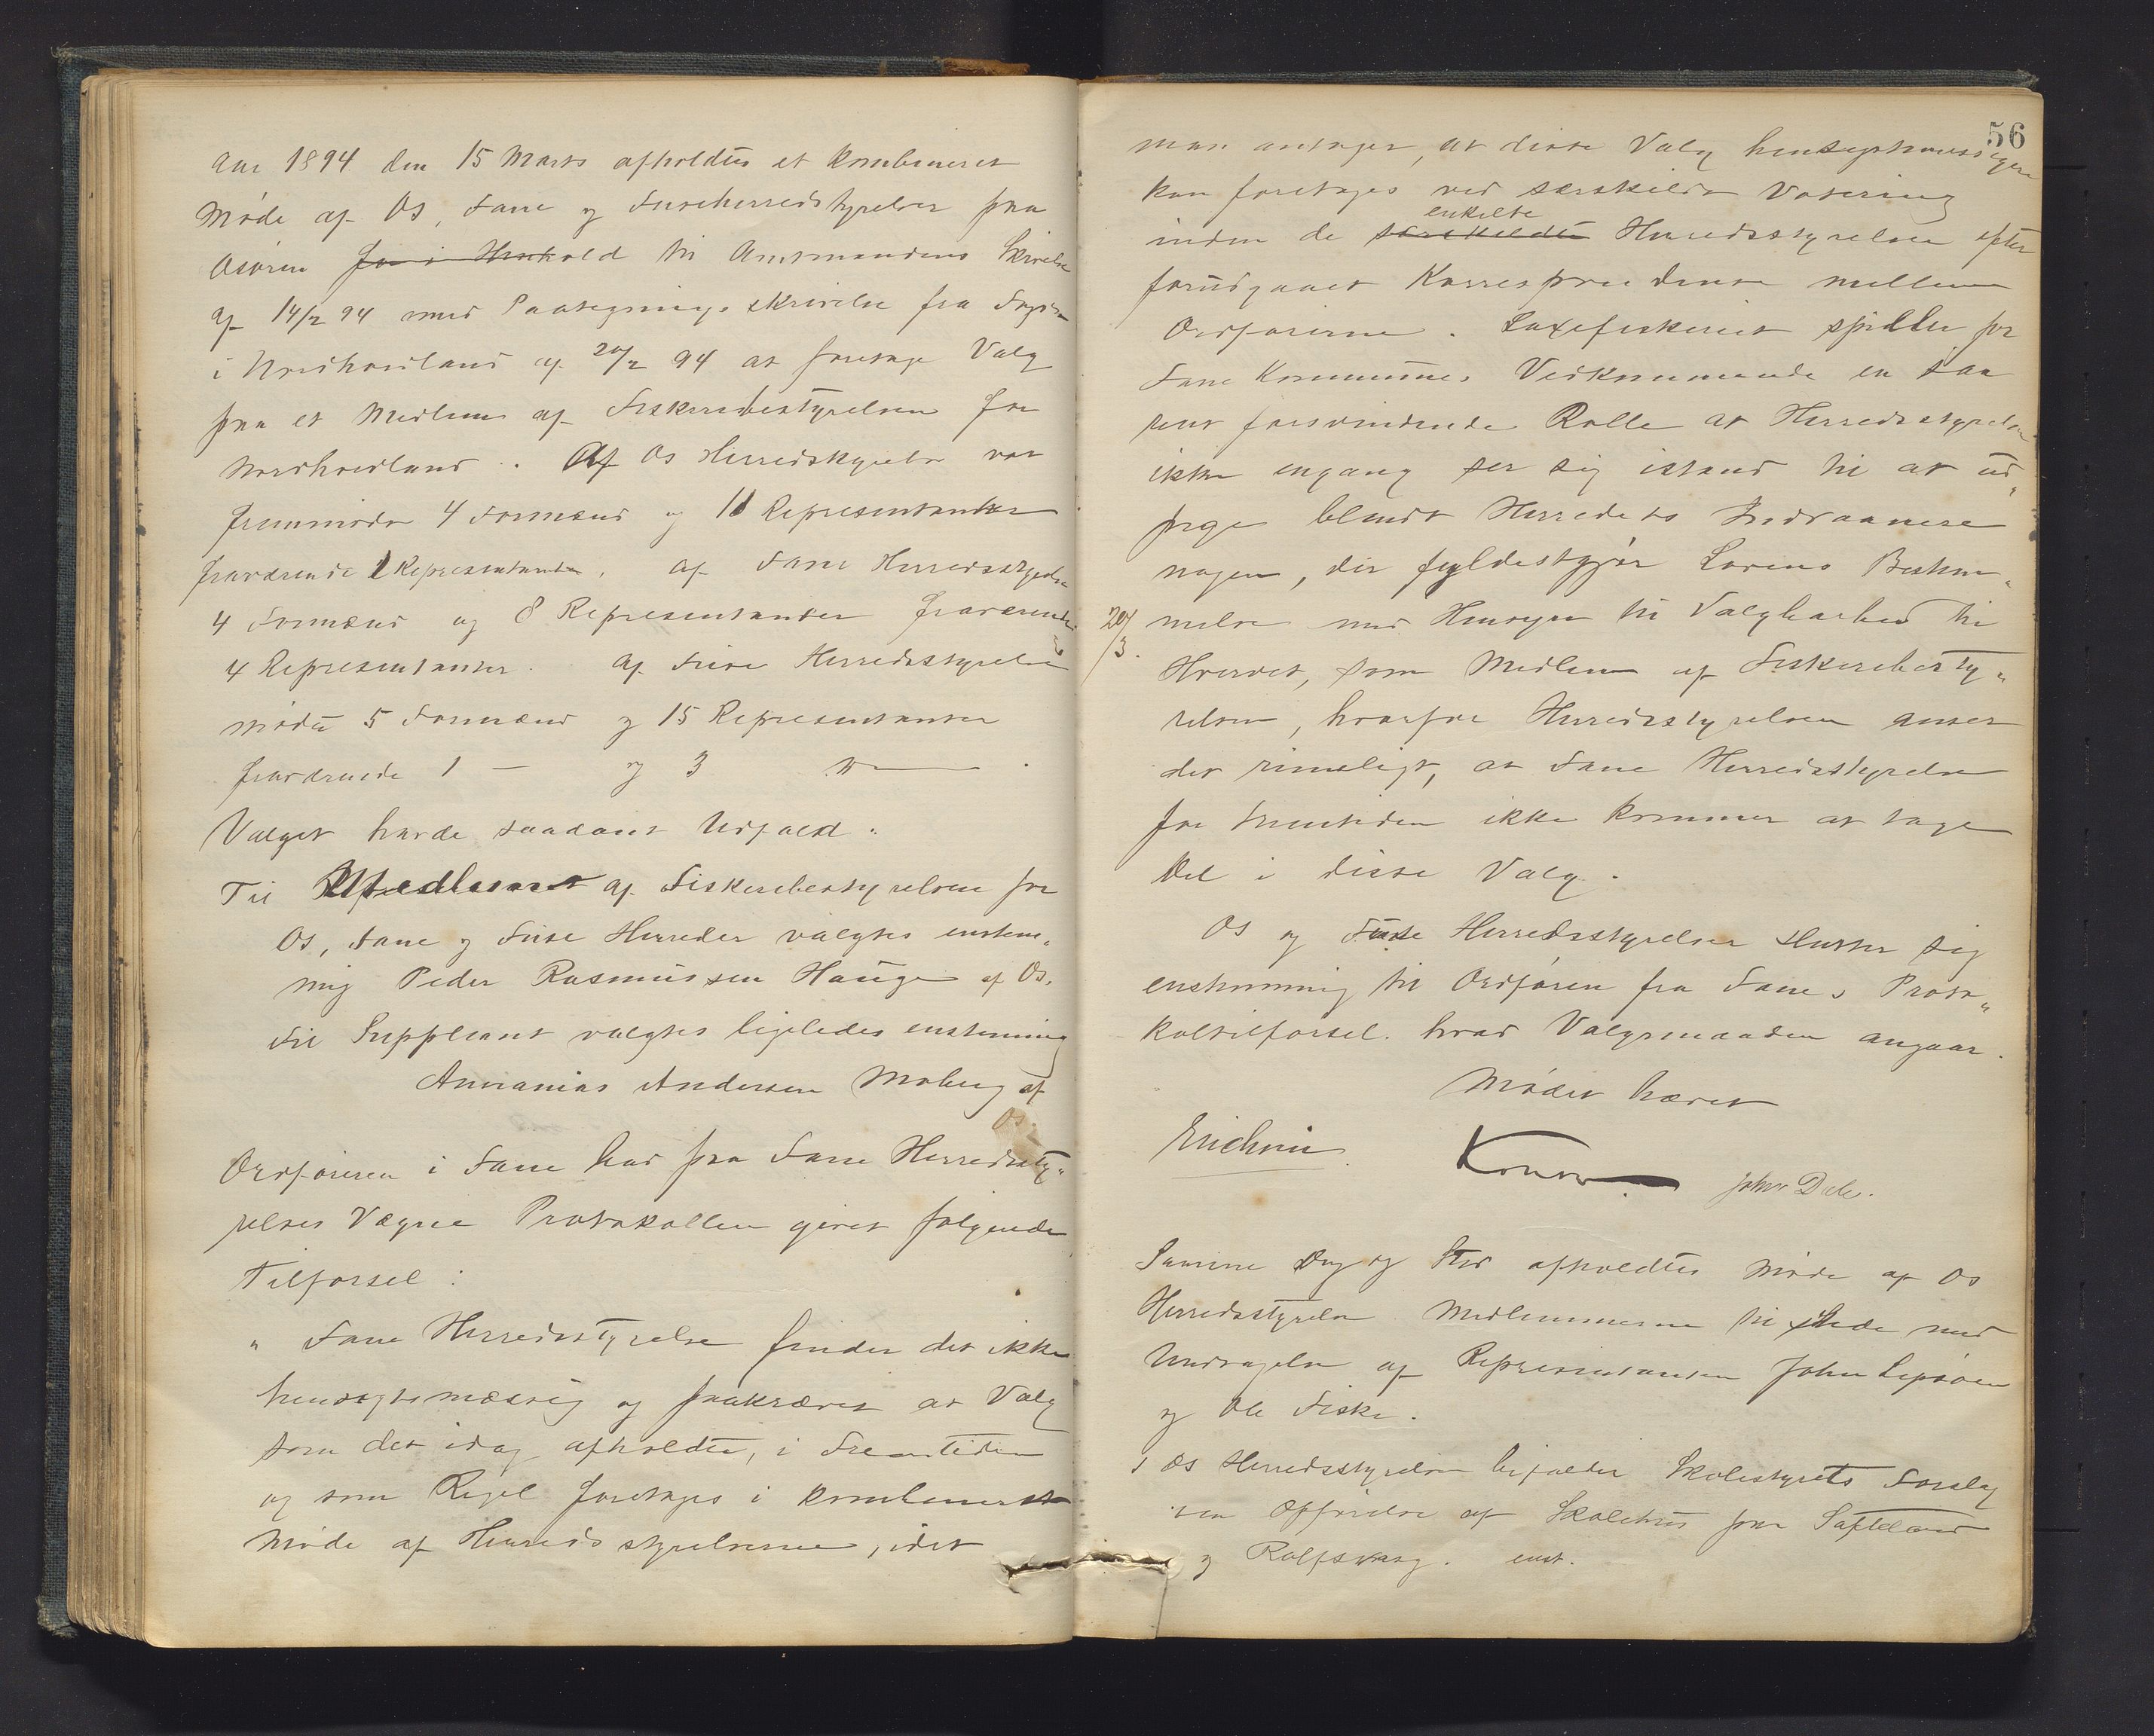 Aar 1894 den 15 Marts afholdtes et kombineret
Møde af Os, Fane og Fuseherredstyrelser paa
Osøren for i Henhold til Amtmandens Skrivelse
af 14/2 94 med Paategningsskrivelse fra Fogden
i Nordhordland af 20/2 94 at foretage Valg
paa et Medlem af Fiskeribestyrelsen for
Nordhordland. Af Os Herredstyrelse var
fremmødte 4 Formænd og 11 Representanter
fraværende 1 Representanter. af Fane Herredsstyrelse
4 Formænd og 8 Representanter fraværende
4 Representanter. Af Fuse Herredsstyrelse
mødte 5 Formænd og 15 Representanter
fraværende 1 — og 3 "— .
Valget havde saadant Udfald:
Til Medlem af Fiskeribestyrelsen for
Os, Fane og Fuse Herreder valgtes enstem„
mig Peder Rasmussen Hauge af Os.
Til Suppleant valgtes ligeledes enstemmig
Annanias Andersen Moberg af
Os.
Ordføreren i Fane har paa Fane Herredssty„
relses Vegne Protokollen givet følgende
Tilførsel:
" Fane Herredsstyrelse finder det ikke
hensigtsmæssig og paakrævet at Valg
som det idag afholdte, i Fremtiden
og som Regel foretages i kombineret
Møde af Herredsstyrelserne, idet
56
man antager, at disse Valg hensigtsmæssigere
kan foretages ved særskilde Votering
enkelte
inden de særskildte Herredsstyrelser efter
forudgaaet Korrespondense mellem
Ordførerne. Laxefiskeriet spiller for
Fane Kommunes Vedkommende en saa
rent forsvindende Rolle at Herredsstyrelsen
ikke engang ser sig istand til at ud„
pege blandt Herredets Indvaanere
nogen, der fyldestgjør Lovens Bestem„
20/3.
melse med Hensyn til Valgbarhed til
Hvervet, som Medlem af Fiskeribesty„
relsen, hvorfor Herredsstyrelsen anser
det rimeligt, at Fane Herredsstyrelse
for Fremtiden ikke kommer at tage
Del i disse Valg.
Os og Fuse Herredsstyrelser slutter sig
enstemmig til Ordføren fra Fanes Proto„
koltilførsel. hvad Valgmaaden angaar.
Mødet hævet
Erichsen Konow. John Dale.
Samme Dag og Sted afholdtes Møde af Os
Herredsstyrelse Medlemmerne tilstede med
Undtagelse af Representanten John Lepsøen
og Ole Fiske.
1 Os Herredsstyrelse bifalder Skolestyrets Forslag
om Opførelse af Skolehus paa Søfteland
og Rolfsvaag. enst.